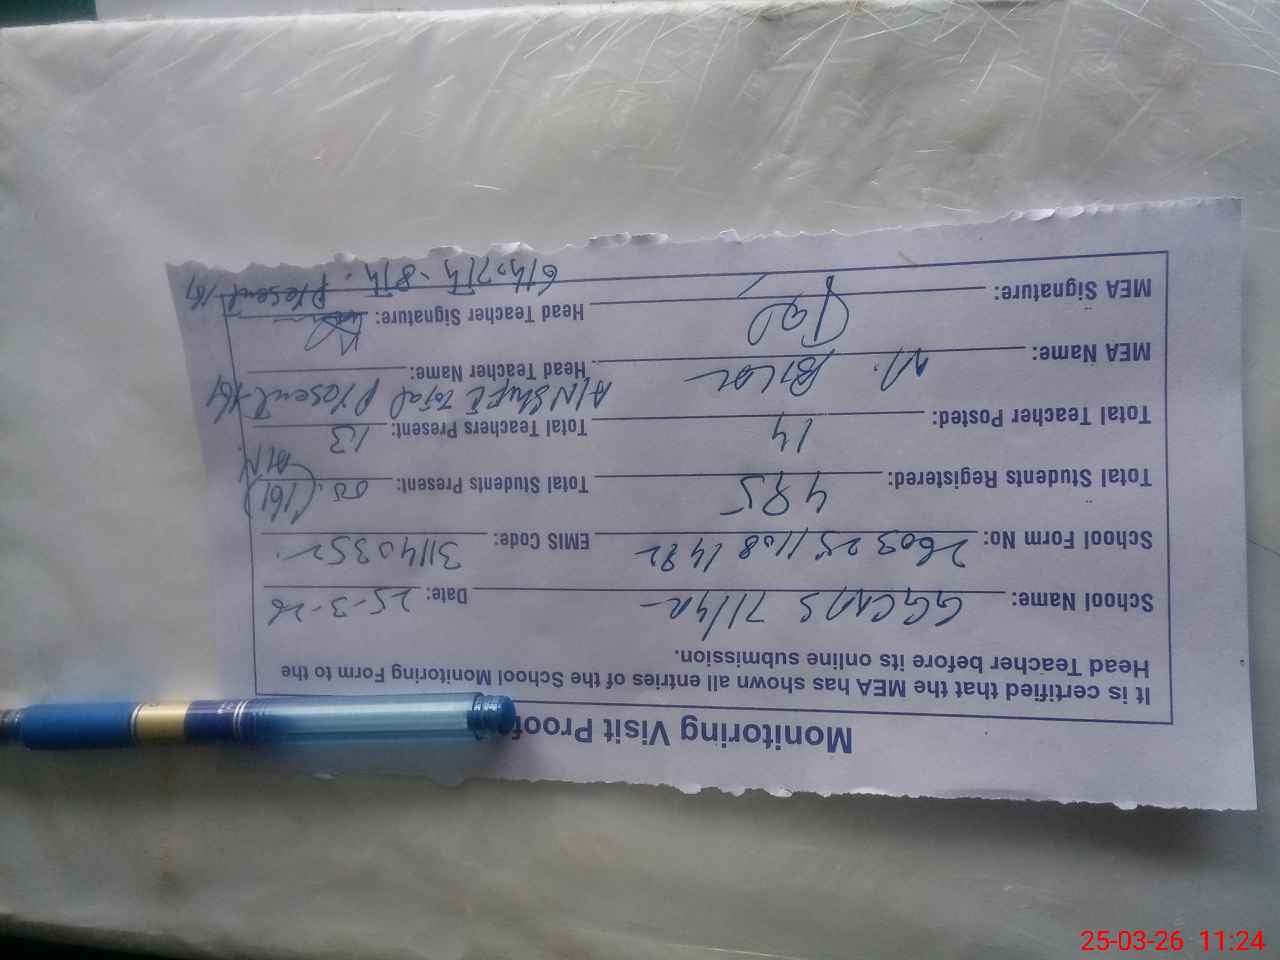 Monitoring Visit Proof
It is certified that the MEA has shown all entries of the School Monitoring Form to the
Head Teacher before its online submission.
School Name: 71/4R Date: 25-3-26
School Form No: EMIS Code: 31140352
Total Students Registered: 485 Total Students Present: 00 (161)
Total Teacher Posted: 14 Total Teachers Present: 13
Total Present 161
MEA Name: M. Bilal Head Teacher Name:
MEA Signature: Head Teacher Signature:
6th, 7th, 8th. Present 161
25-03-26 11:24